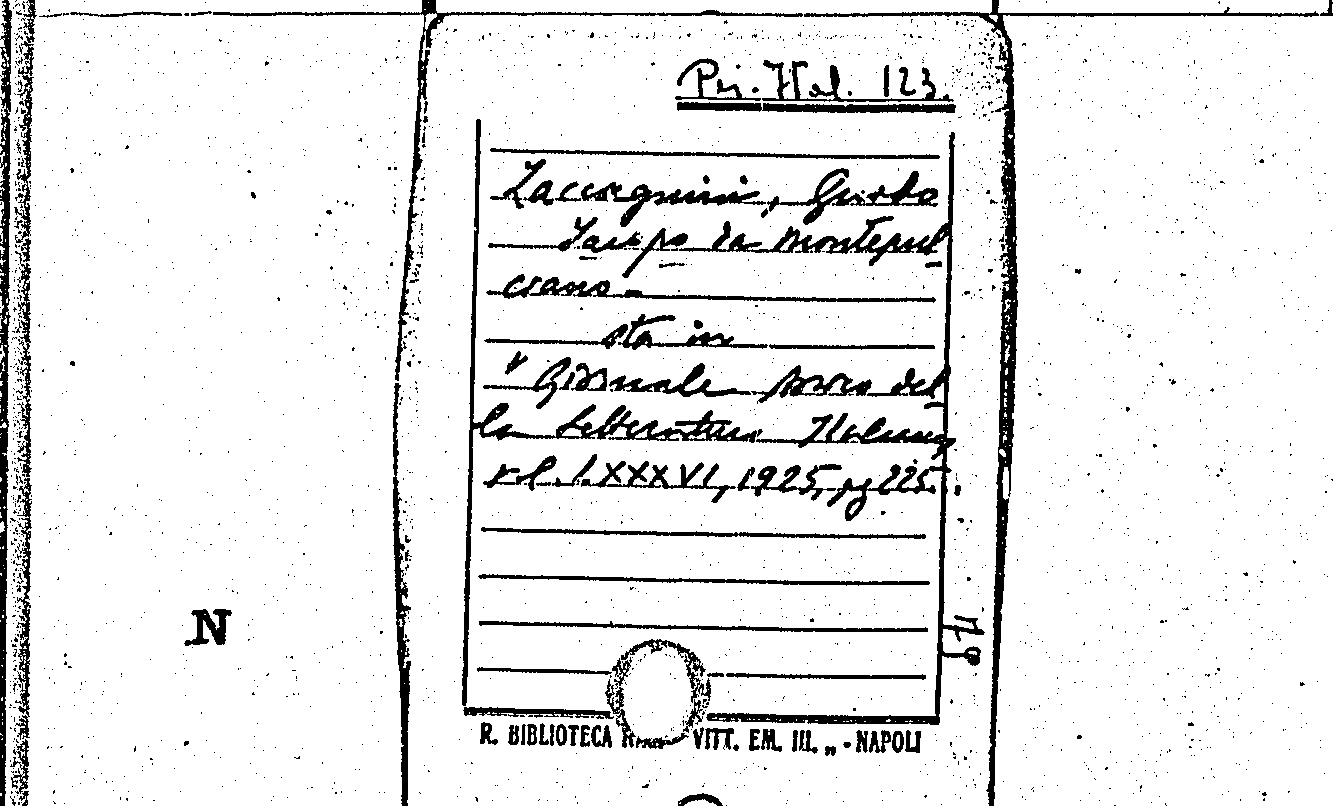 Per. Ital. 123.
Zaccagnini, Guido
Jacopo da Montepul
ciano -
sta in
"Giornale storico del
la letteratura Italiana,
vol. LXXXVI, 1925, pg 225..
N
R. BIBLIOTECA VITT. EM. III. „ - NAPOLI